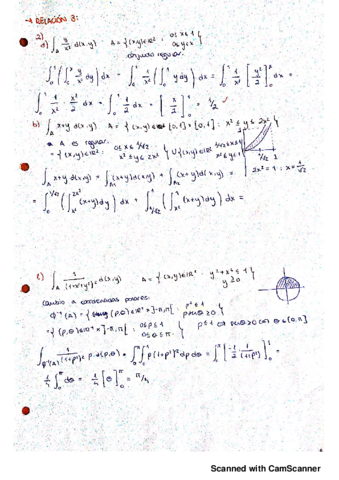 → RELACIÓN 3:
2)
a) ∫_A y/x² d(x,y)   A = {(x,y)∈ℝ² : 0≤x≤1, 0≤y≤x}
conjunto regular.
∫₀¹(∫₀ˣ y/x² dy) dx = ∫₀¹ 1/x² (∫₀ˣ y dy) dx = ∫₀¹ 1/x² [y²/2]₀ˣ dx =
∫₀¹ 1/x² · x²/2 dx = ∫₀¹ 1/2 dx = [x/2]₀¹ = 1/2
b) ∫_A x+y d(x,y)   A = {(x,y)∈[0,1]×[0,1] : x² ≤ y ≤ 2x²}
* A es regular.
= {(x,y)∈ℝ² : 0≤x≤1/√2, x²≤y≤2x²} ∪ {(x,y)∈ℝ² : 1/√2≤x≤1, x²≤y≤1}
1/√2 1
2x² = 1 ; x = 1/√2
∫_A x+y d(x,y) = ∫_A₁ (x+y) d(x,y) + ∫_A₂ (x+y) d(x,y) =
= ∫₀^(1/√2) (∫_x²^2x² (x+y) dy) dx + ∫_(1/√2)^1 (∫_x²^1 (x+y) dy) dx =
c) ∫_A 1/(1+x²+y²)² d(x,y)   A = {(x,y)∈ℝ² : y²+x² ≤ 1, y≥0}
cambio a coordenadas polares.
ρ² ≤ 1
= {(ρ,θ)∈ℝ⁺×]-π,π[ : 0≤ρ≤1, 0≤θ≤π}
1/4 ∫₀^π dθ = 1/4 [θ]₀^π = π/4
Scanned with CamScanner